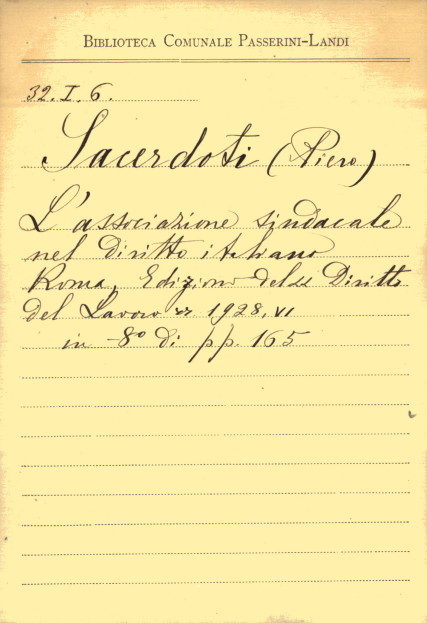 BIBLIOTECA COMUNALE PASSERINI-LANDI
32. I. 6.
Sacerdoti (Piero)
L'associazione sindacale
nel diritto italiano
Roma, Edizione del « Diritto
del Lavoro » 1928, VI
in -8º di pp. 165